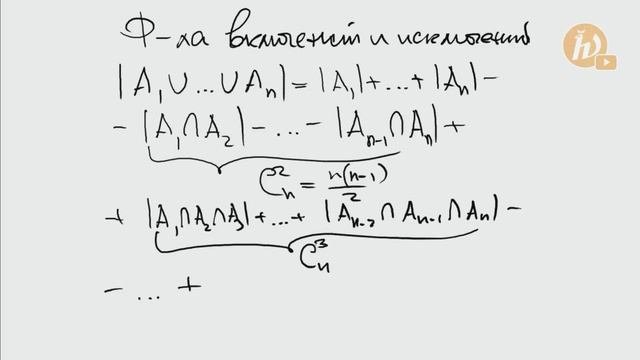 Ф-ла включений и исключений
|A₁∪...∪Aₙ|=|A₁|+...+|Aₙ|-
-|A₁∩A₂|-...-|Aₙ₋₁∩Aₙ|+
C²ₙ = n(n-1)/2
+|A₁∩A₂∩A₃|+...+|Aₙ₋₂∩Aₙ₋₁∩Aₙ|-
C³ₙ
-...+